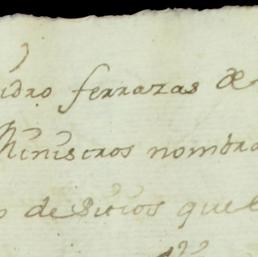 idro ferrazas de
Ministros nombra
de Sitios que